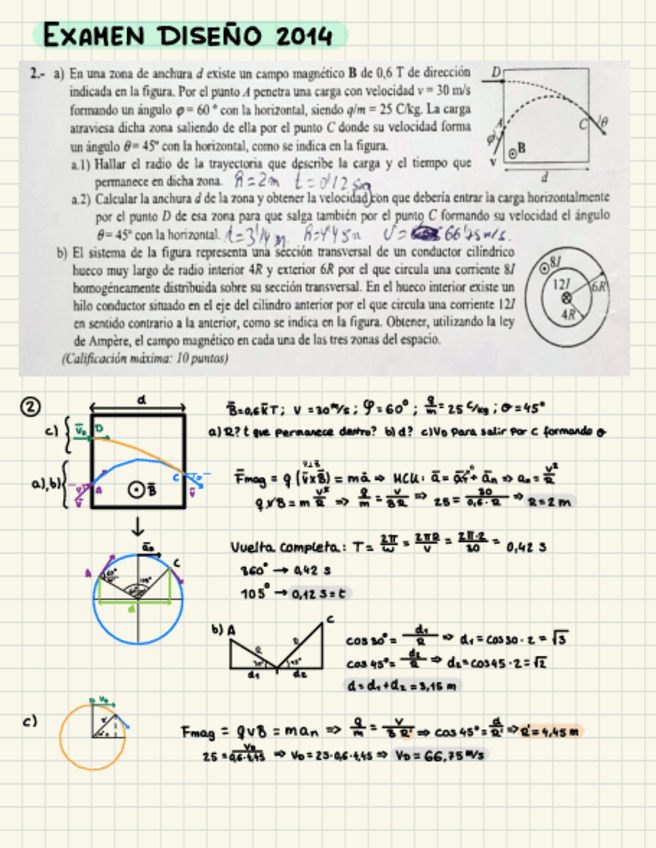 EXAMEN DISEÑO 2014
2.- a) En una zona de anchura d existe un campo magnético B de 0,6 T de dirección
indicada en la figura. Por el punto A penetra una carga con velocidad v = 30 m/s
formando un ángulo φ= 60 ° con la horizontal, siendo q/m = 25 C/kg. La carga
atraviesa dicha zona saliendo de ella por el punto C donde su velocidad forma
un ángulo θ= 45º con la horizontal, como se indica en la figura.
a.1) Hallar el radio de la trayectoria que describe la carga y el tiempo que
permanece en dicha zona. R=2m t=0'12 sg
a.2) Calcular la anchura d de la zona y obtener la velocidad con que debería entrar la carga horizontalmente
por el punto D de esa zona para que salga también por el punto C formando su velocidad el ángulo
θ= 45º con la horizontal. d=3'14 m. R=4'45m V= 66'75 m/s.
D
A
C
θ
φ
v
B
d
b) El sistema de la figura representa una sección transversal de un conductor cilíndrico
hueco muy largo de radio interior 4R y exterior 6R por el que circula una corriente 8I
homogéneamente distribuida sobre su sección transversal. En el hueco interior existe un
hilo conductor situado en el eje del cilindro anterior por el que circula una corriente 12I
en sentido contrario a la anterior, como se indica en la figura. Obtener, utilizando la ley
de Ampère, el campo magnético en cada una de las tres zonas del espacio.
(Calificación máxima: 10 puntos)
8I
12I
6R
4R
②
d
c)
V₀ D
a),b)
A
C
B̄
v̄
v̄
B̄=0,6 k̄ T; V =30 m/s; φ=60°; q/m = 25 C/kg; θ=45°
a) R? t que permanece dentro? b) d? c) V₀ para salir por C formando θ
F̄mag = q (v̄ x B̄) = mā ⇒ MCU: ā = āt + ān ⇒ an = v²/R
q v B = m v²/R ⇒ q/m = v/BR ⇒ 25 = 30/0,6·R ⇒ R=2 m
Vuelta completa: T= 2π/ω = 2πR/v = 2π·2/30 = 0,42 s
360° → 0,42 s
105° → 0,12 s = t
A
C
d
b) A
C
R
R
30°
45°
d₁
d₂
cos 30° = d₁/R ⇒ d₁ = cos30 · 2 = √3
cos 45° = d₂/R ⇒ d₂=cos45·2=√2
d=d₁+d₂ = 3,15 m
c)
D V₀
Fmag = qvB = man ⇒ q/m = v/B R' ⇒ cos 45° = d/R' ⇒ R'= 4,45 m
25 = V₀/0,6·4,45 ⇒ V₀= 25·0,6·4,45 ⇒ V₀ = 66,75 m/s